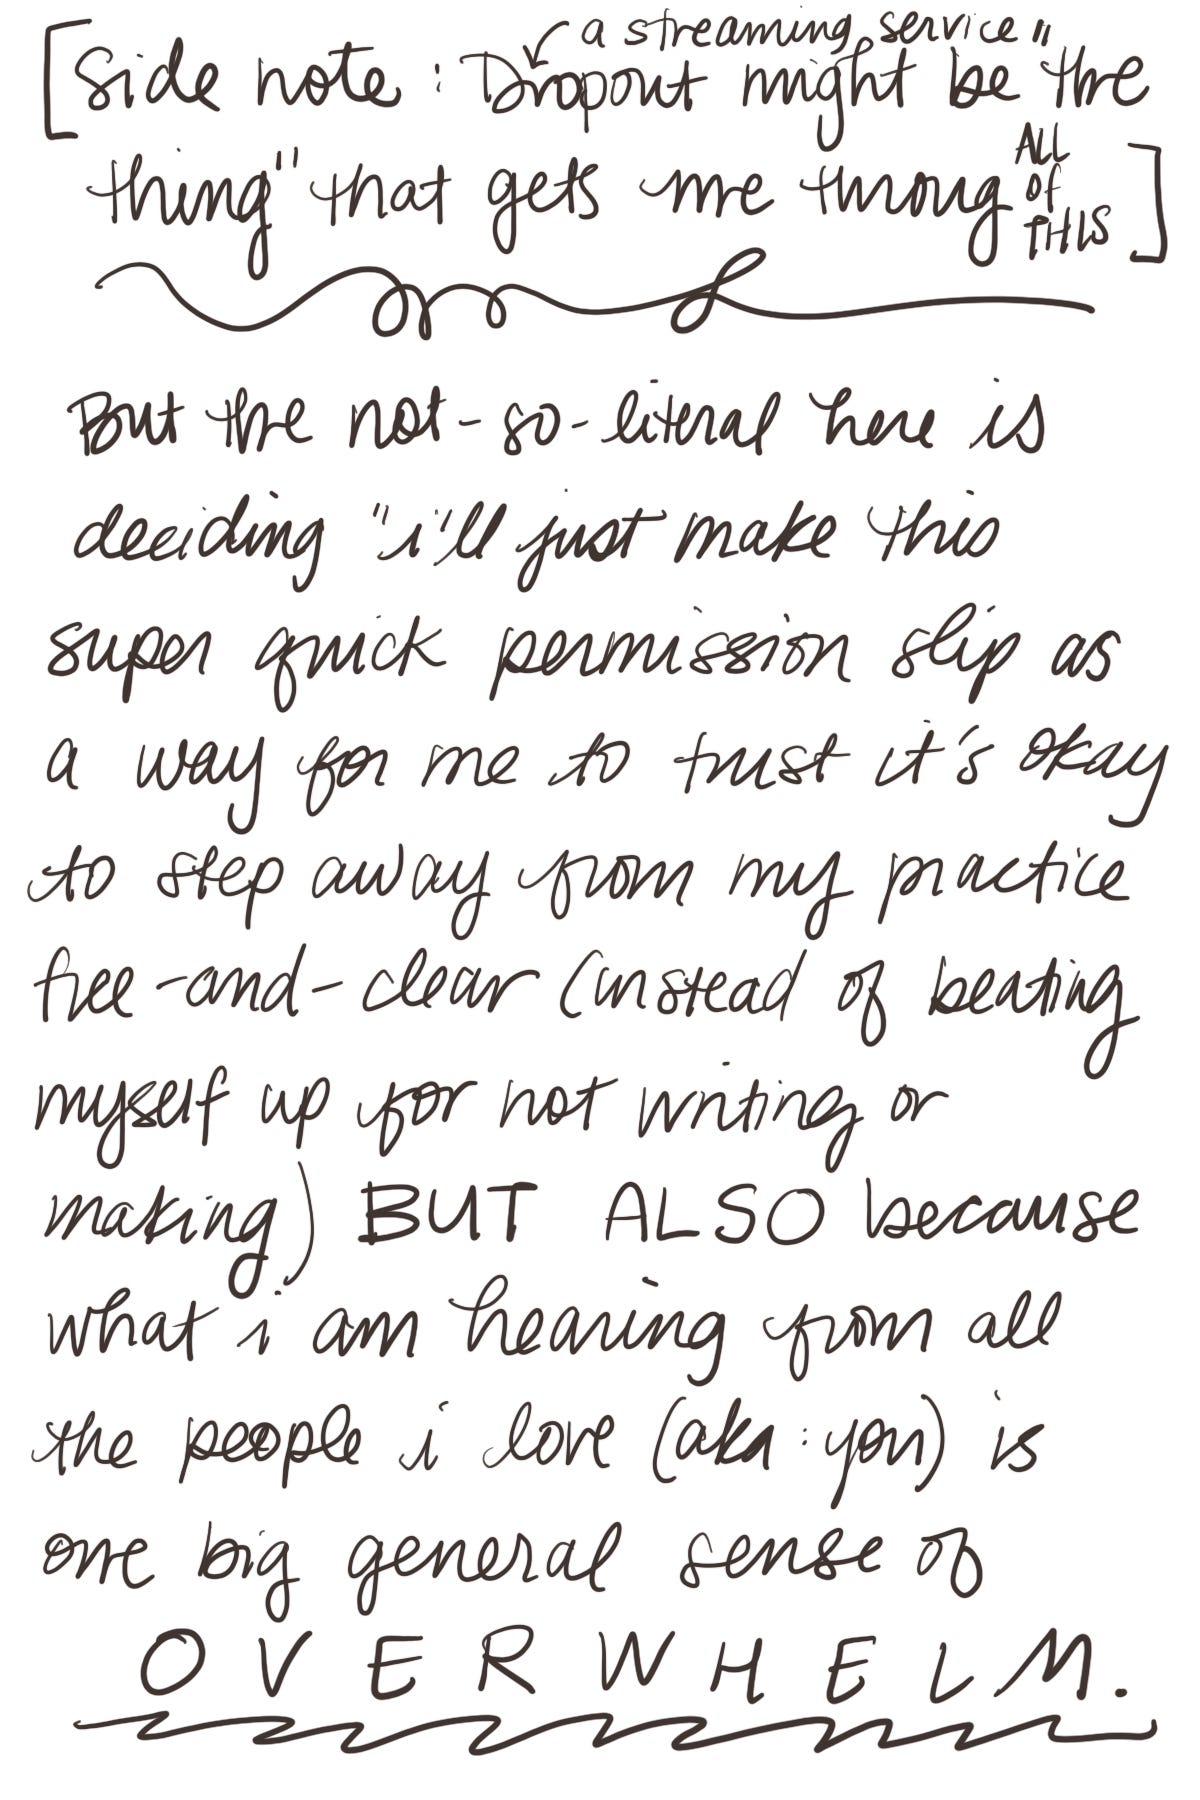 a streaming service
[Side note: Dropout might be "the
thing" that gets me throug ALL
of
THIS]
But the not-so-literal here is
deciding "i'll just make this
super quick permission slip as
a way for me to trust it's okay
to step away from my practice
free-and-clear (instead of beating
myself up for not writing or
making) BUT ALSO because
what i am hearing from all
the people i love (aka: you) is
one big general sense of
OVERWHELM.